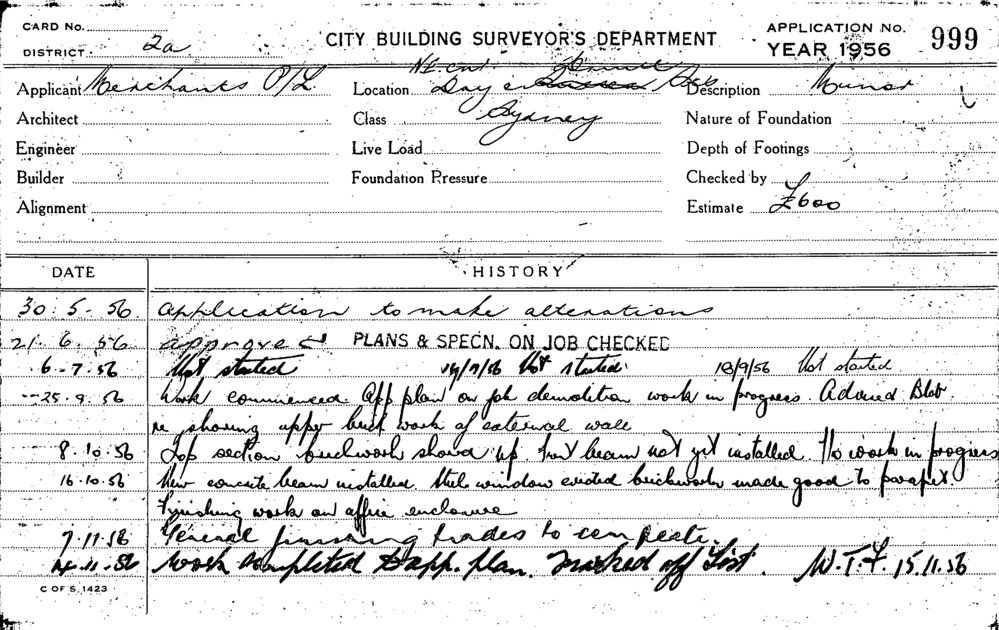 CARD No.
DISTRICT. 2a
CITY BUILDING SURVEYOR'S DEPARTMENT
APPLICATION No. 999
YEAR 1956
Applicant Merchants P/L
Location N.E. cnr. Day &
Description Minor
Architect
Class Sydney
Nature of Foundation
Engineer
Live Load
Depth of Footings
Builder
Foundation Pressure
Checked by
Alignment
Estimate £600
DATE HISTORY
30.5.56 Application to make alterations
21.6.56 approved PLANS & SPECN. ON JOB CHECKED
6.7.56 Not started 19/7/56 Not started 18/9/56 Not started
25.9.56 Work commenced App plan on job demolition work in progress. Advised Bldr.
re shoring upper brick work of external wall
8.10.56 Top section brickwork shored up but beam not yet installed. No work in progress
16.10.56 New concrete beam installed steel window erected brickwork made good to parapet.
Finishing work on office enclosure
7.11.56 General finishing trades to complete.
14.11.56 Work completed to app. plan. Marked off List. W.T.F. 15.11.56
C OF S. 1423